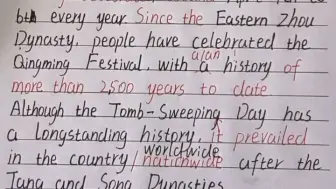 6th every year Since the Eastern Zhou
Dynasty, people have celebrated the
a/an
Qingming Festival, with a history of
more than 2,500 years to date
Although the Tomb-Sweeping Day has
a longstanding history, it prevailed
worldwide
in the country/nationwide after the
Tang and Song Dynasties